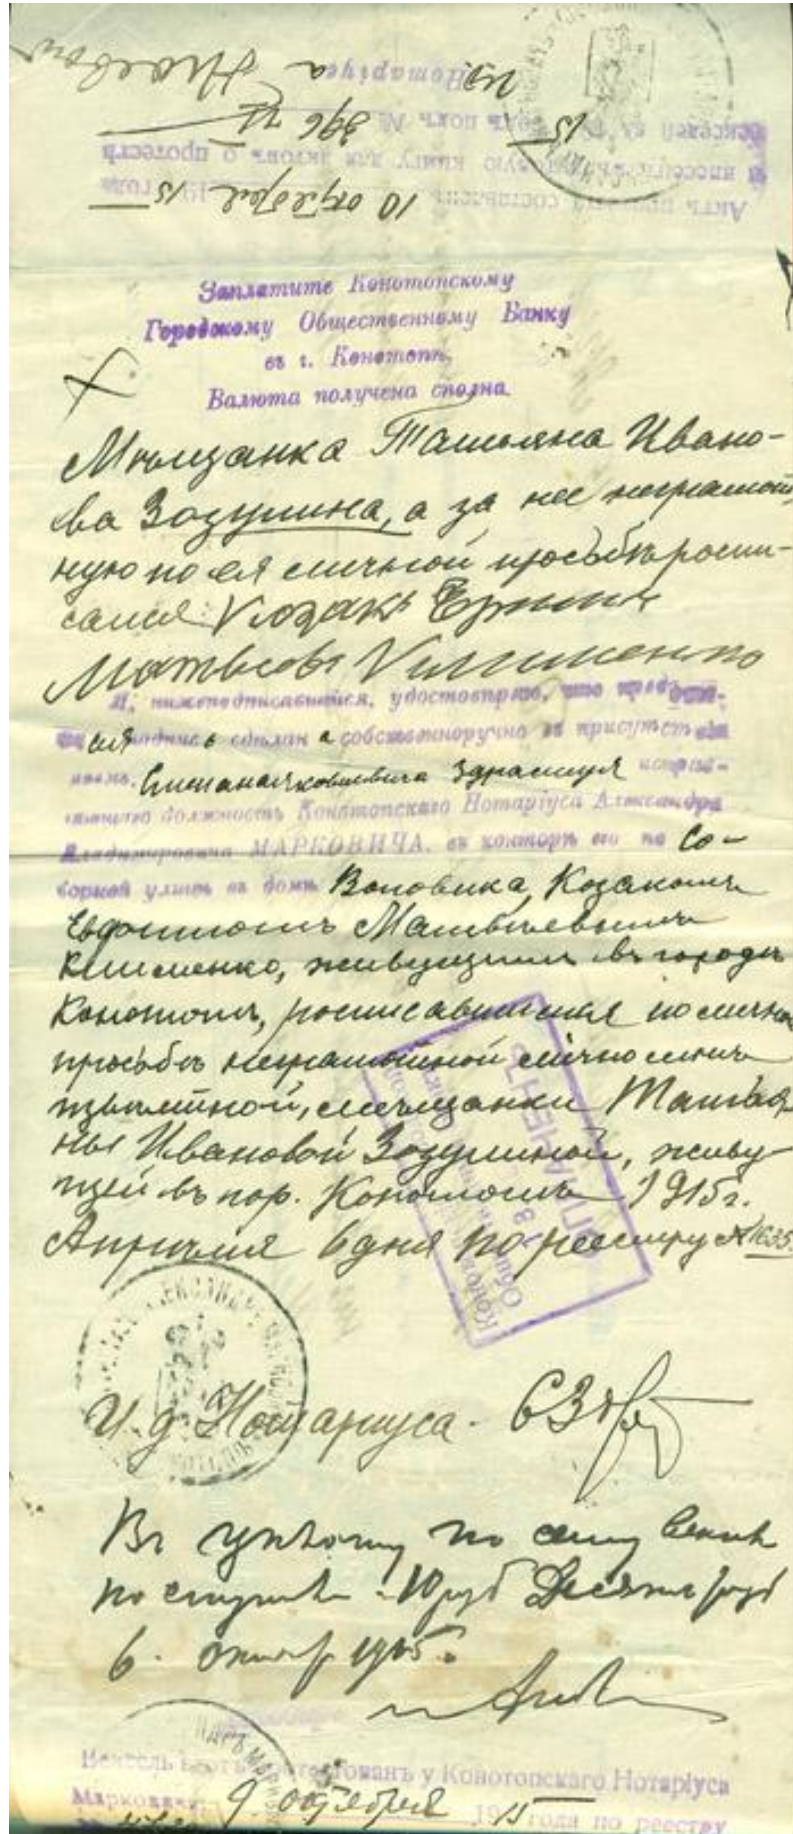 10 октября 15
Актъ протеста составленъ 19 года
и внесенъ въ актовую книгу для актовъ о протестѣ
векселей за 15 годъ подъ № 396
И.д. Нотаріуса
Заплатите Конотопскому
Городскому Общественному Банку
въ г. Конотопѣ,
Валюта получена сполна.
Мѣщанка Татьяна Ивано-
ва Зозулина, а за нее неграмот-
ную по ея личной просьбѣ роспи-
сался: Козакъ
Матвѣевъ Клименко
Я, нижеподписавшійся, удостовѣряю, что предстоя-
сія надпись сдѣлана собственноручно въ присутствіи
моемъ, исправ-
ляющаго должность Конотопскаго Нотаріуса Александра
Владиміровича МАРКОВИЧА, въ конторѣ его на Со-
борной улицѣ въ домѣ Воловика, Козакомъ
Матвѣевымъ
Клименко, живущимъ въ городѣ
Конотопѣ, росписавшимся по личной
просьбѣ неграмотной лично мнѣ
извѣстной, мѣщанки Татья-
ны Ивановой Зозулиной, живу-
щей въ гор. Конотопѣ 1915 г.
Апрѣля 6 дня по реестру № 1635
И.д. Нотаріуса.
Въ уплату по сему векселю
поступило 10 руб Десять руб
6. октяб 1915.
Вексель протестованъ у Конотопскаго Нотаріуса
Марковича 9 октября 1915 года по реестру